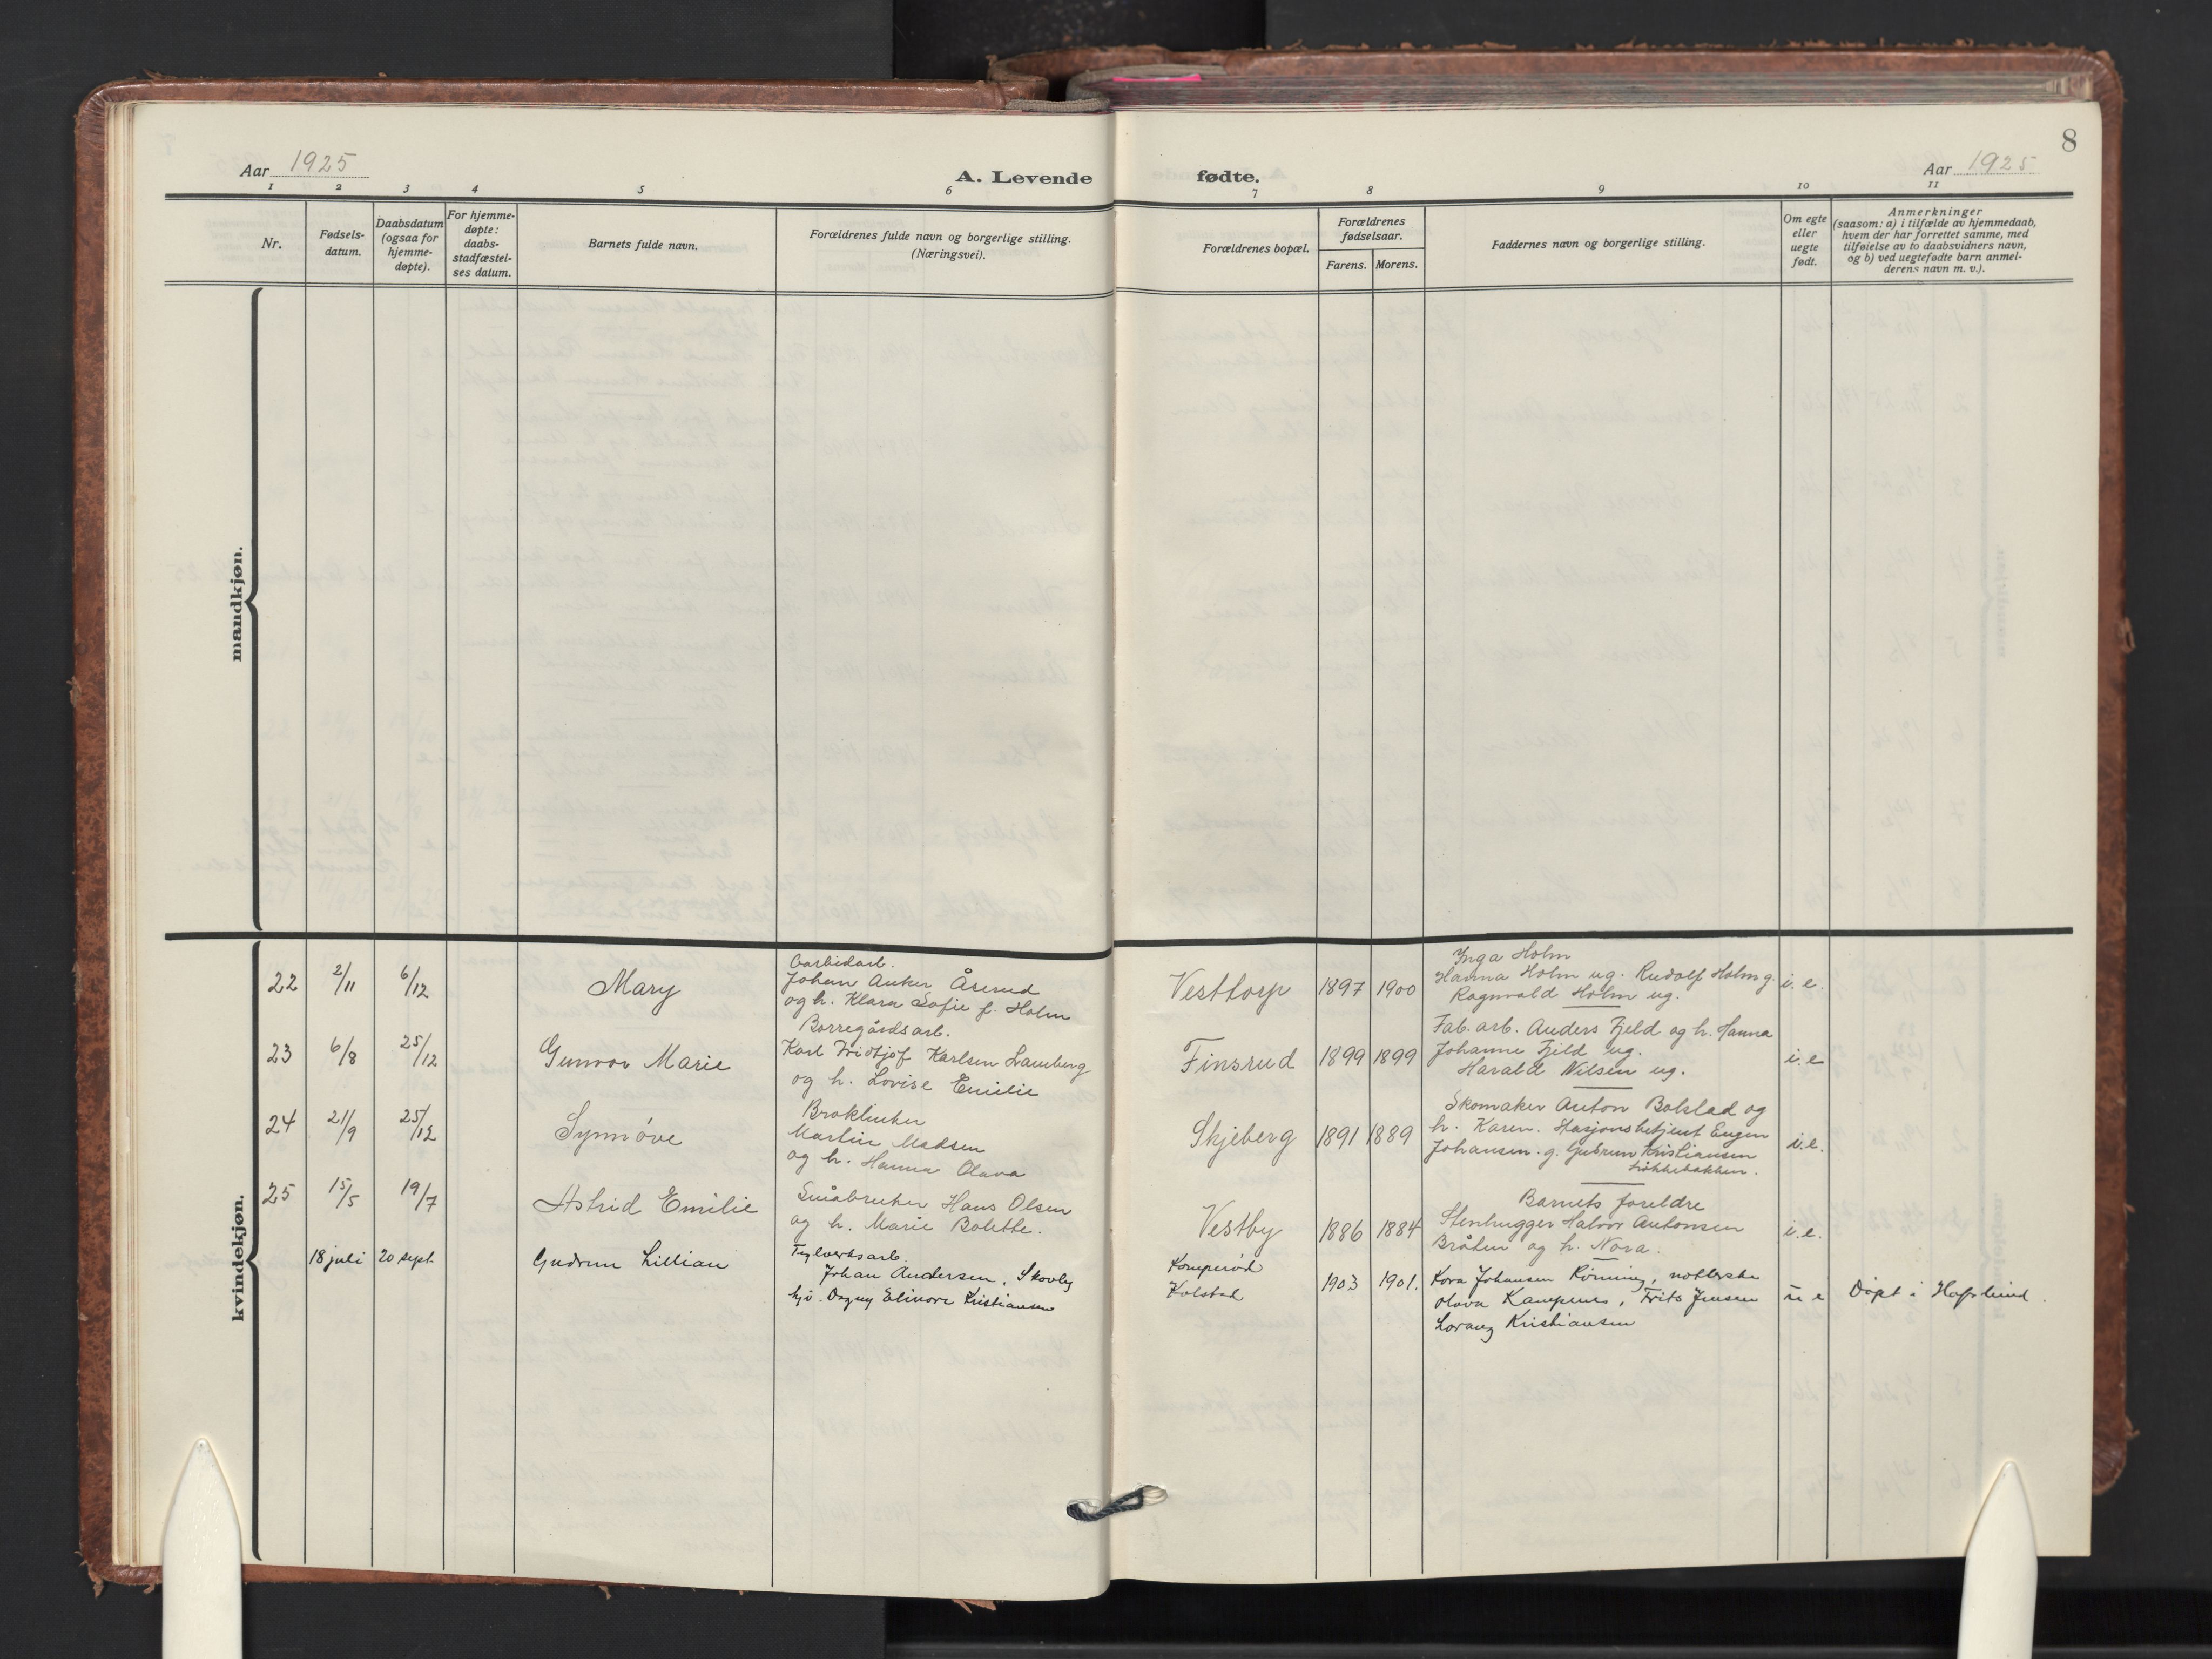 8
Aar 1925
A. Levende
fødte.
Aar 1925
1 2 3 4 5 6 7 8 9 10 11
Nr.
Fødsels-
datum.
Daabsdatum
(ogsaa for
hjemme-
døpte).
For hjemme-
døpte:
daabs-
stadfæstel-
ses datum.
Barnets fulde navn.
Forældrenes fulde navn og borgerlige stilling.
(Næringsvei).
Forældrenes bopæl.
Forældrenes
fødselsaar.
Farens. Morens.
Faddernes navn og borgerlige stilling.
Om egte
eller
uegte
født.
Anmerkninger
(saasom: a) i tilfælde av hjemmedaab,
hvem der har forrettet samme, med
tilføielse av to daabsvidners navn,
og b) ved uegtefødte barn anmel-
derens navn m. v.).
mandkjøn.
kvindekjøn.
22 2/11 6/12 Mary
Carbidarb.
Johan Anker Åserud
og h. Klara Sofie f. Holm
Vesttorp 1897 1900
Inga Holm
Hanna Holm ug. Rudolf Holm g.
Ragnvald Holm ug.
i. e.
23 6/8 25/12 Gunvor Marie
Borregårdsarb.
Karl Fridtjof Karlsen Lamberg
og h. Lovise Emilie
Finsrud 1899 1899
Fab. arb. Anders Fjeld og h. Hanna
Johanne Fjeld ug.
Harald Nilsen ug.
i. e
24 21/9 25/12 Synnøve
Martin Madsen
og h. Hanna Olava
Skjeberg 1891 1889
Skomaker Anton Bolstad og
h. Karen. Stasjonsbetjent Eugen
Johansen. g. Gudrun Kristiansen
Løkkebakken.
i. e.
25 15/5 19/7 Astrid Emilie
Småbruker Hans Olsen
og h. Marie Bolette.
Vestby 1886 1884
Barnets foreldre
Stenhugger Halvor Antonsen
Bråten og h. Nora.
i. e.
18 juli 20 sept. Gudrun Lillian
Teglverksarb.
Johan Andersen, Skovly
hjv. Dagny Elinore Kristiansen
Komperød
Kolstad
1903 1901.
Kora Johansen Rønning, notterske
Olava Kampenes, Frits Jensen
Lorang Kristiansen
u e
Døpt i Hafslund.